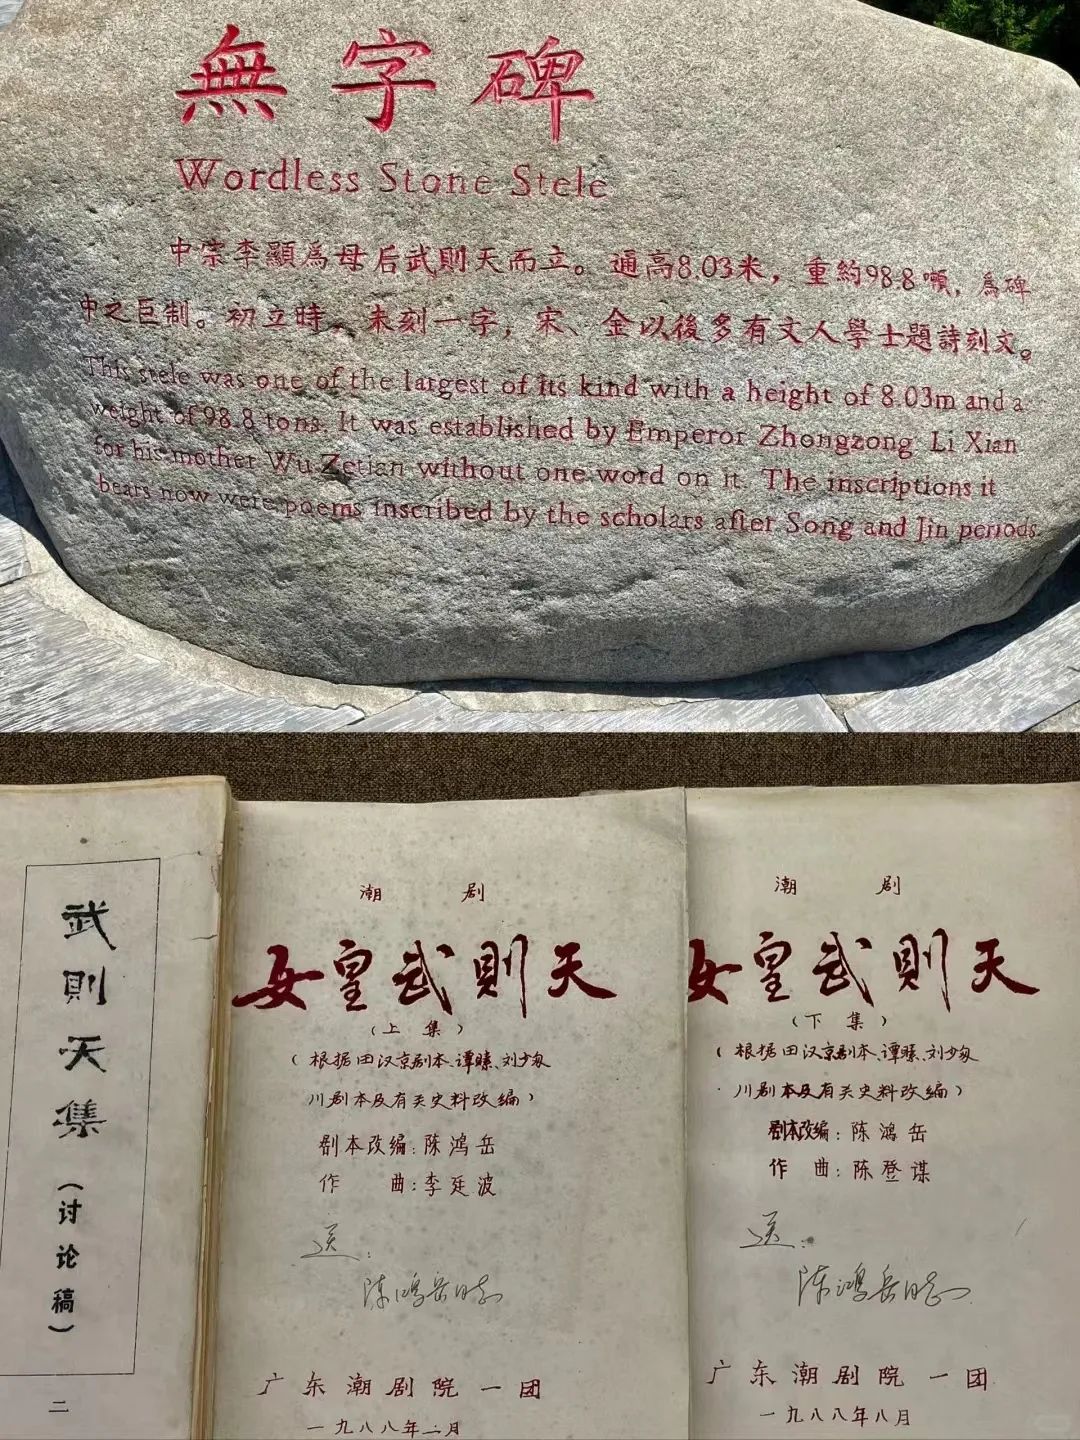 無字碑
Wordless Stone Stele
中宗李顯爲母后武則天而立。通高8.03米，重約98.8噸，爲碑
中之巨制。初立時，未刻一字，宋、金以後多有文人學士題詩刻文。
This stele was one of the largest of its kind with a height of 8.03m and a
weight of 98.8 tons. It was established by Emperor Zhongzong Li Xian
for his mother Wu Zetian without one word on it. The inscriptions it
bears now were poems inscribed by the scholars after Song and Jin periods.
武則天集（讨论稿）
二
潮剧
女皇武則天
（上集）
（根据田汉京剧本、谭愫、刘少匆
川剧本及有关史料改编）
剧本改编：陈鸿岳
作曲：李廷波
送：
陈鸿岳同志
广东潮剧院一团
一九八八年二月
潮剧
女皇武則天
（下集）
（根据田汉京剧本、谭愫、刘少匆
川剧本及有关史料改编）
剧本改编：陈鸿岳
作曲：陈登谋
送：
陈鸿岳同志
广东潮剧院一团
一九八八年八月